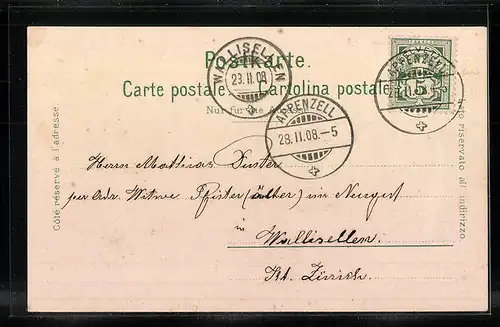 Postkarte.
WALLISELLEN
29.II.08
Carte postale. Cartolina postale.
Nur für die Adresse
APPENZELL
28.II.08.-5
APPENZELL
5
Côté réservé à l'adresse
Lato riservato all' indirizzo
Herrn Mathias Suter
per Adr. Witwe Pfister (älter) im Neugut
in
Wallisellen.
Kt. Zürich.